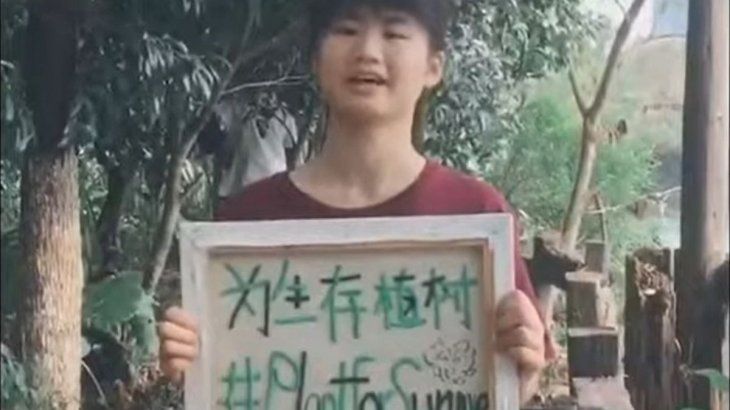 为生存植树
#PlantforSurvive